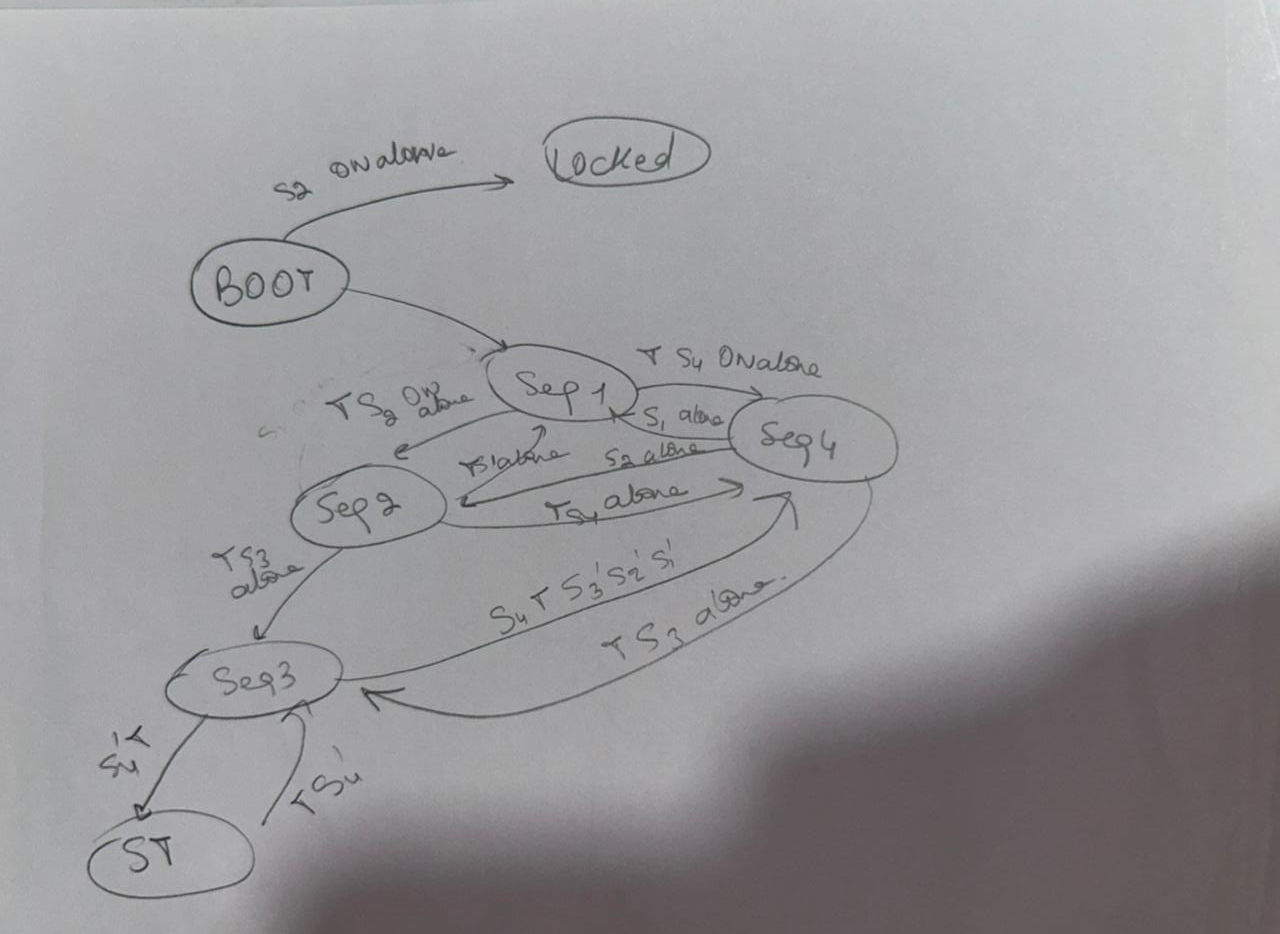 S2 ON alone
Locked
BOOT
T S4 ON alone
Seq 1
T S2 ON
alone
S1 alone
Seq 4
TS1 alone
S2 alone
Seq 2
TS4 alone
TS3
alone
S4 T S3' S2' S1'
T S3 alone.
Seq 3
S4' T
T S4'
ST